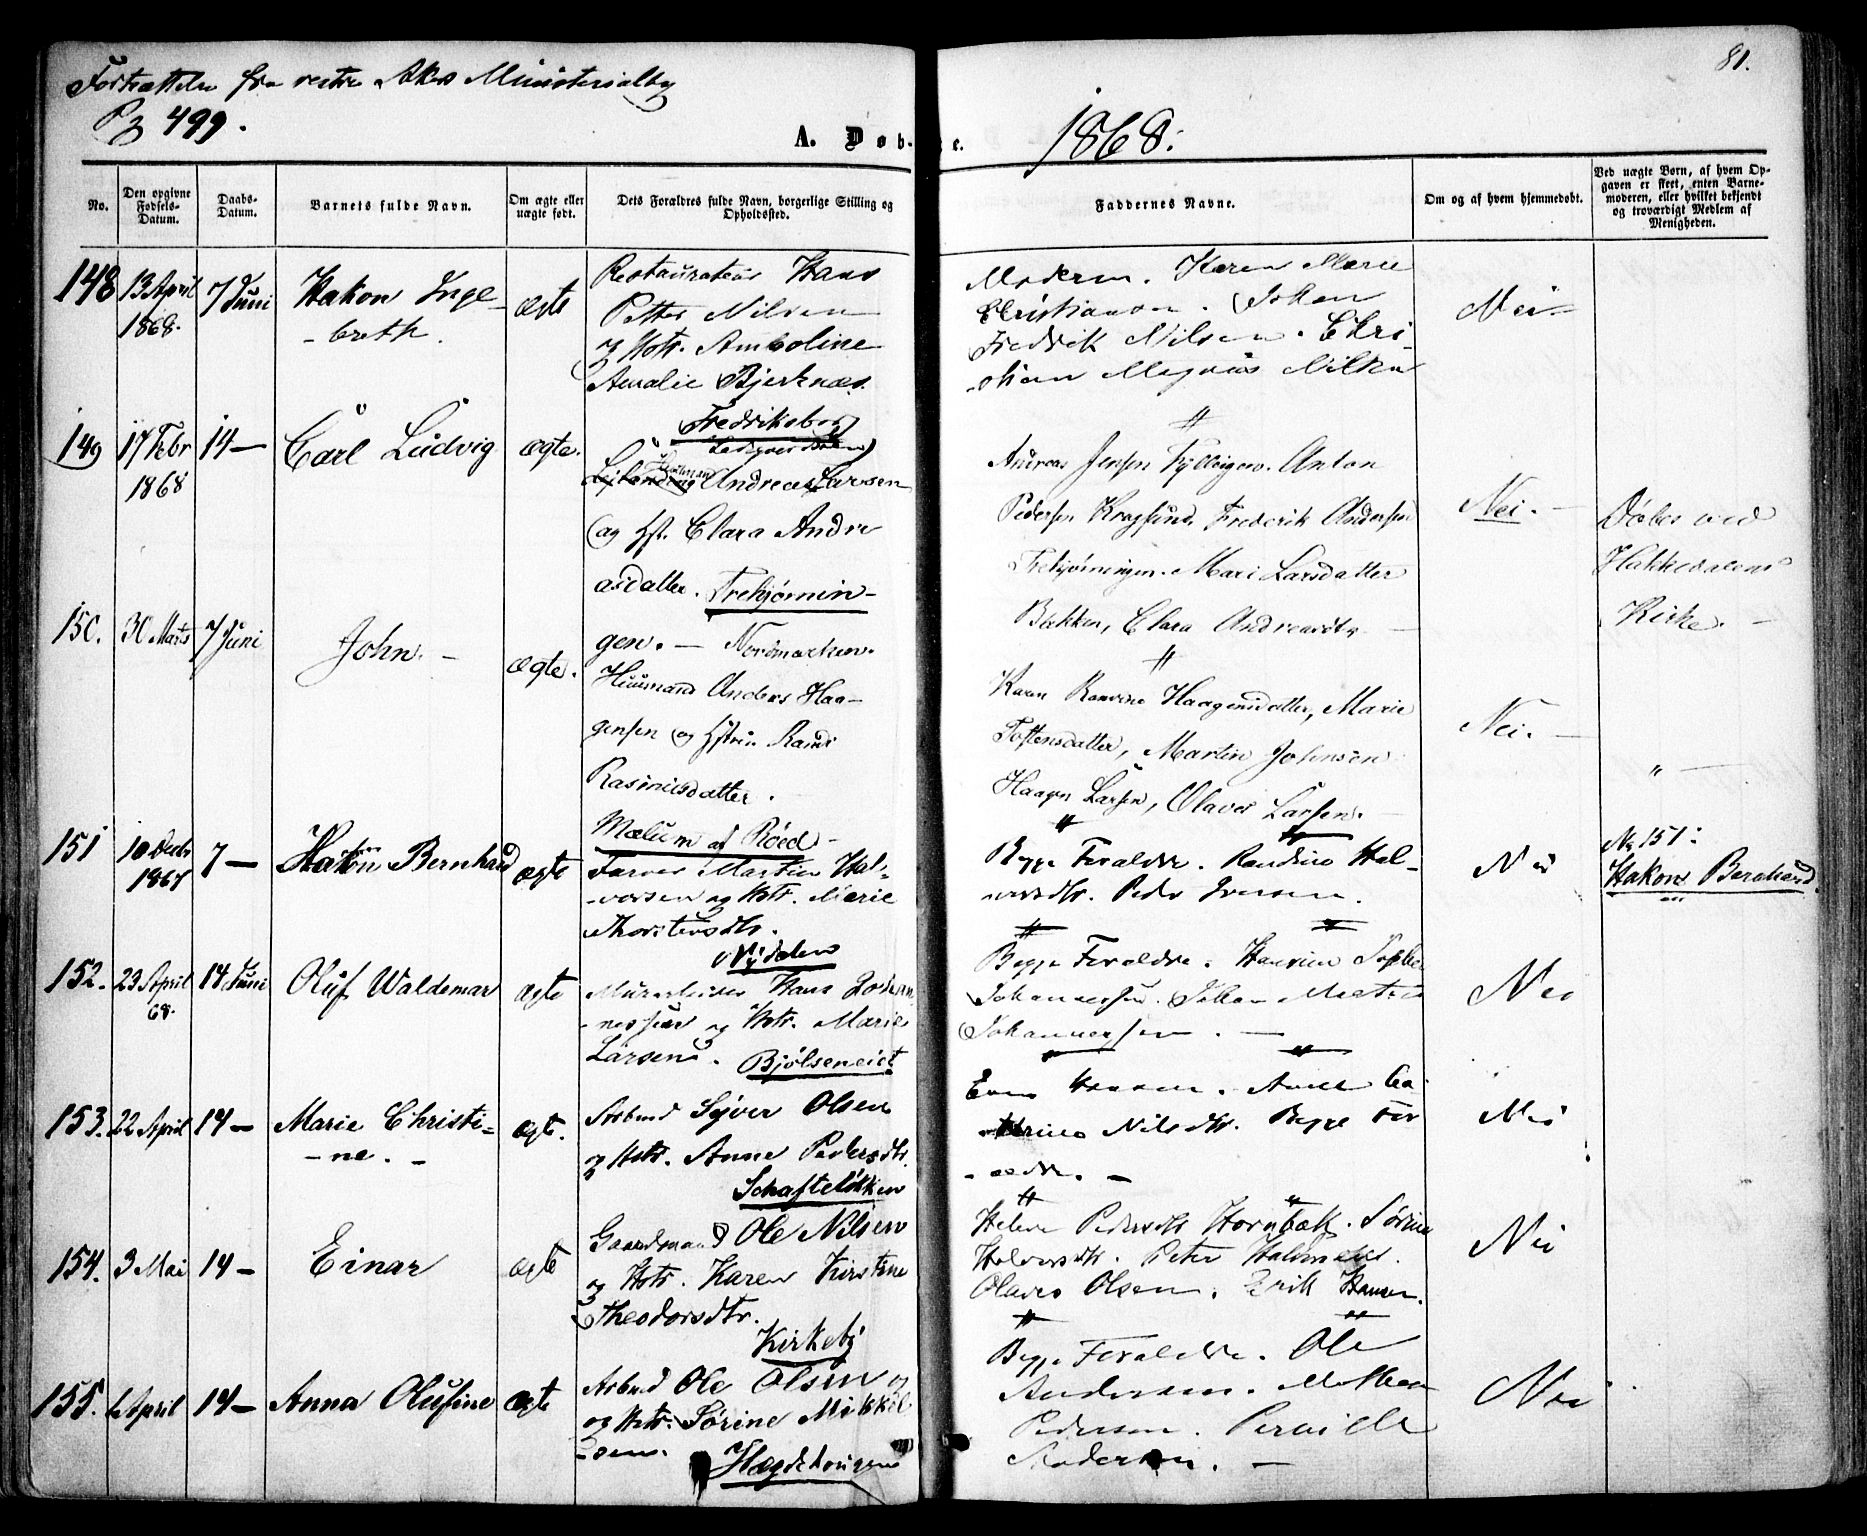 81.
Fortsættelse fra vestre Akers Ministerialbog
Pg 499.
A. Døb-
te.
1868.
No.
Den opgivne Fødsels-Datum.
Daabs-Datum.
Barnets fulde Navn.
Om ægte eller uægte født.
Dets Forældres fulde Navn, borgerlige Stilling og Opholdssted.
Faddernes Navne.
Om og af hvem hjemmedøbt.
Ved uægte Børn, af hvem Opgaven er skeet, enten Barnemoderen, eller hvilket bekjendt og troværdigt Medlem af Menigheden.
148 13 April 1868. 7 Juni
Hakon Inge-
-breth.
ægte
Restaurateur Hans
Petter Nilsen
og Hstr. Amboline
Amalie Bjerknæs.
Fredriksborg
Moderen. Karen Marie
Christiansen. Johan
Fredrik Nilsen. Chri-
-stian Magnus Nilsen
Nei
149 17 Febr 1868 14 —
Carl Ludvig
ægte.
Andreas Larsen
og Hst. Clara Andre
asdatter. Trehjørnin-
gen. — Nordmarken.
Andreas Jensen Fyllingen. Anton
Pedersen Kragsund, Frederik Andersen
Trehjørningen. Mari Larsdatter
Bakken, Clara Andreasdtr —
Nei. —
Døbt ved
Hakkedalens
Kirke. —
150. 30 Marts 7 Juni
John. —
ægte.
Huusmand Anders Haa-
gensen og Hstru Randi
Rasmusdatter.
Mælum af Røed —
Karen Haagensdatter, Marie
Tostensdatter, Martin Johnsen
Haagen Larsen, Olaves Larsen.
Nei. —
" —
151 10 Decbr 1867 7 —
Hakon Bernhard
ægte
Farver Martin Hal-
-vorsen og Hstr. Marie
Thorstensdtr.
Nydalen
Begge Forældre. Randine Hal-
-vorsdtr. Peder Iversen.
Nei
No 151:
Hakon Bernhard
152. 23 April 68. 14 Juni
Oluf Waldemar
ægte
Murarbeider Hans Johan-
-nessen og Hstr. Marie
Larsen. Bjølseneiet
Begge Forældre. Hansine
Johannessen. Johan
Johannessen. —
Nei
153. 22 April 14 —
Marie Christi-
-ne. —
ægte.
Arbmd Syver Olsen
og Hstr. Anne Pedersdtr.
Schafteløkken
Even Hansen. Anne
Nilsdtr. Begge For
-ældre. —
Nei
154. 3 Mai 14 —
Einar
ægte
Gaardmand Ole Nilsen
og Hstr. Karen Kirstine
Theodorsdtr.
Kirkeby
Helene Pedersdtr Hornbæk. Sørine
Halvorsdtr. Peter
Olaves Olsen. Erik Hansen.
Nei
155. 6 April 14 —
Anna Olufine
ægte
Arbmd Ole Olsen
og Hstr. Sørine Mikkel
-sen. Hægdehaugen
Begge Forældre. Ole
Andersen. Mathea
Pedersen. Pernille
Andersen. —
Nei